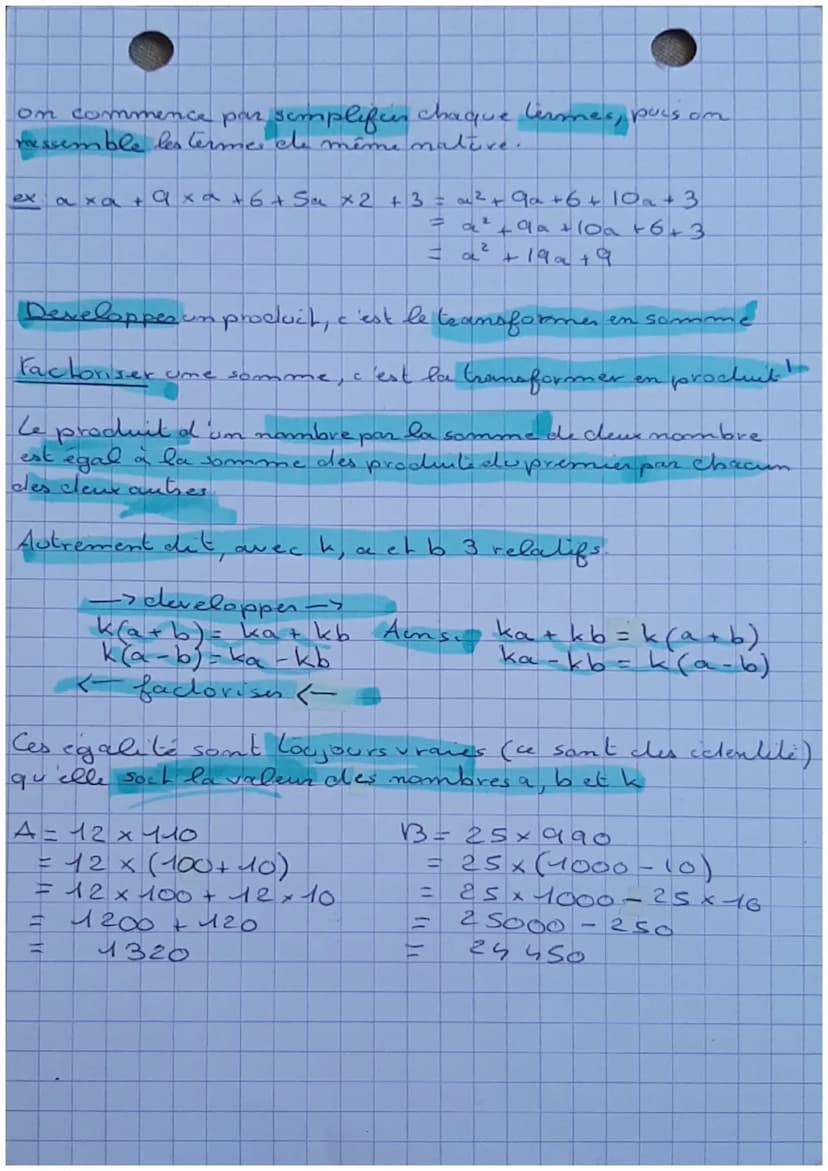 on commence par semplifier chaque termes, puis on
rassemble les termes de même nature.
ex: a x a + 9 x a + 6 + 5a x 2 + 3 = a² + 9a + 6 + 10a + 3
= a² + 9a + 10a + 6 + 3
= a² + 19a + 9
Developper un produit, c'est le transformer en somme
Factoriser une somme, c'est la transformer en produit
Le produit d'un nombre par la somme de deux nombre
est égal à la somme des produits du premier par chacun
des deux autres.
Autrement dit, avec k, a et b 3 relatifs.
→ developper →
k(a+b) = ka + kb Ainsi ka + kb = k(a+b)
k(a-b) = ka - kb ka - kb = k(a-b)
← factoriser ←
Ces égalité sont toujours vraies (ce sont des identité)
qu'elle soit la valeur des nombres a, b et k
A = 12 x 110
= 12 x (100 + 10)
= 12 x 100 + 12 x 10
= 1200 + 120
= 1320
B = 25 x 990
= 25 x (1000 - 10)
= 25 x 1000 - 25 x 10
= 25000 - 250
= 24 450